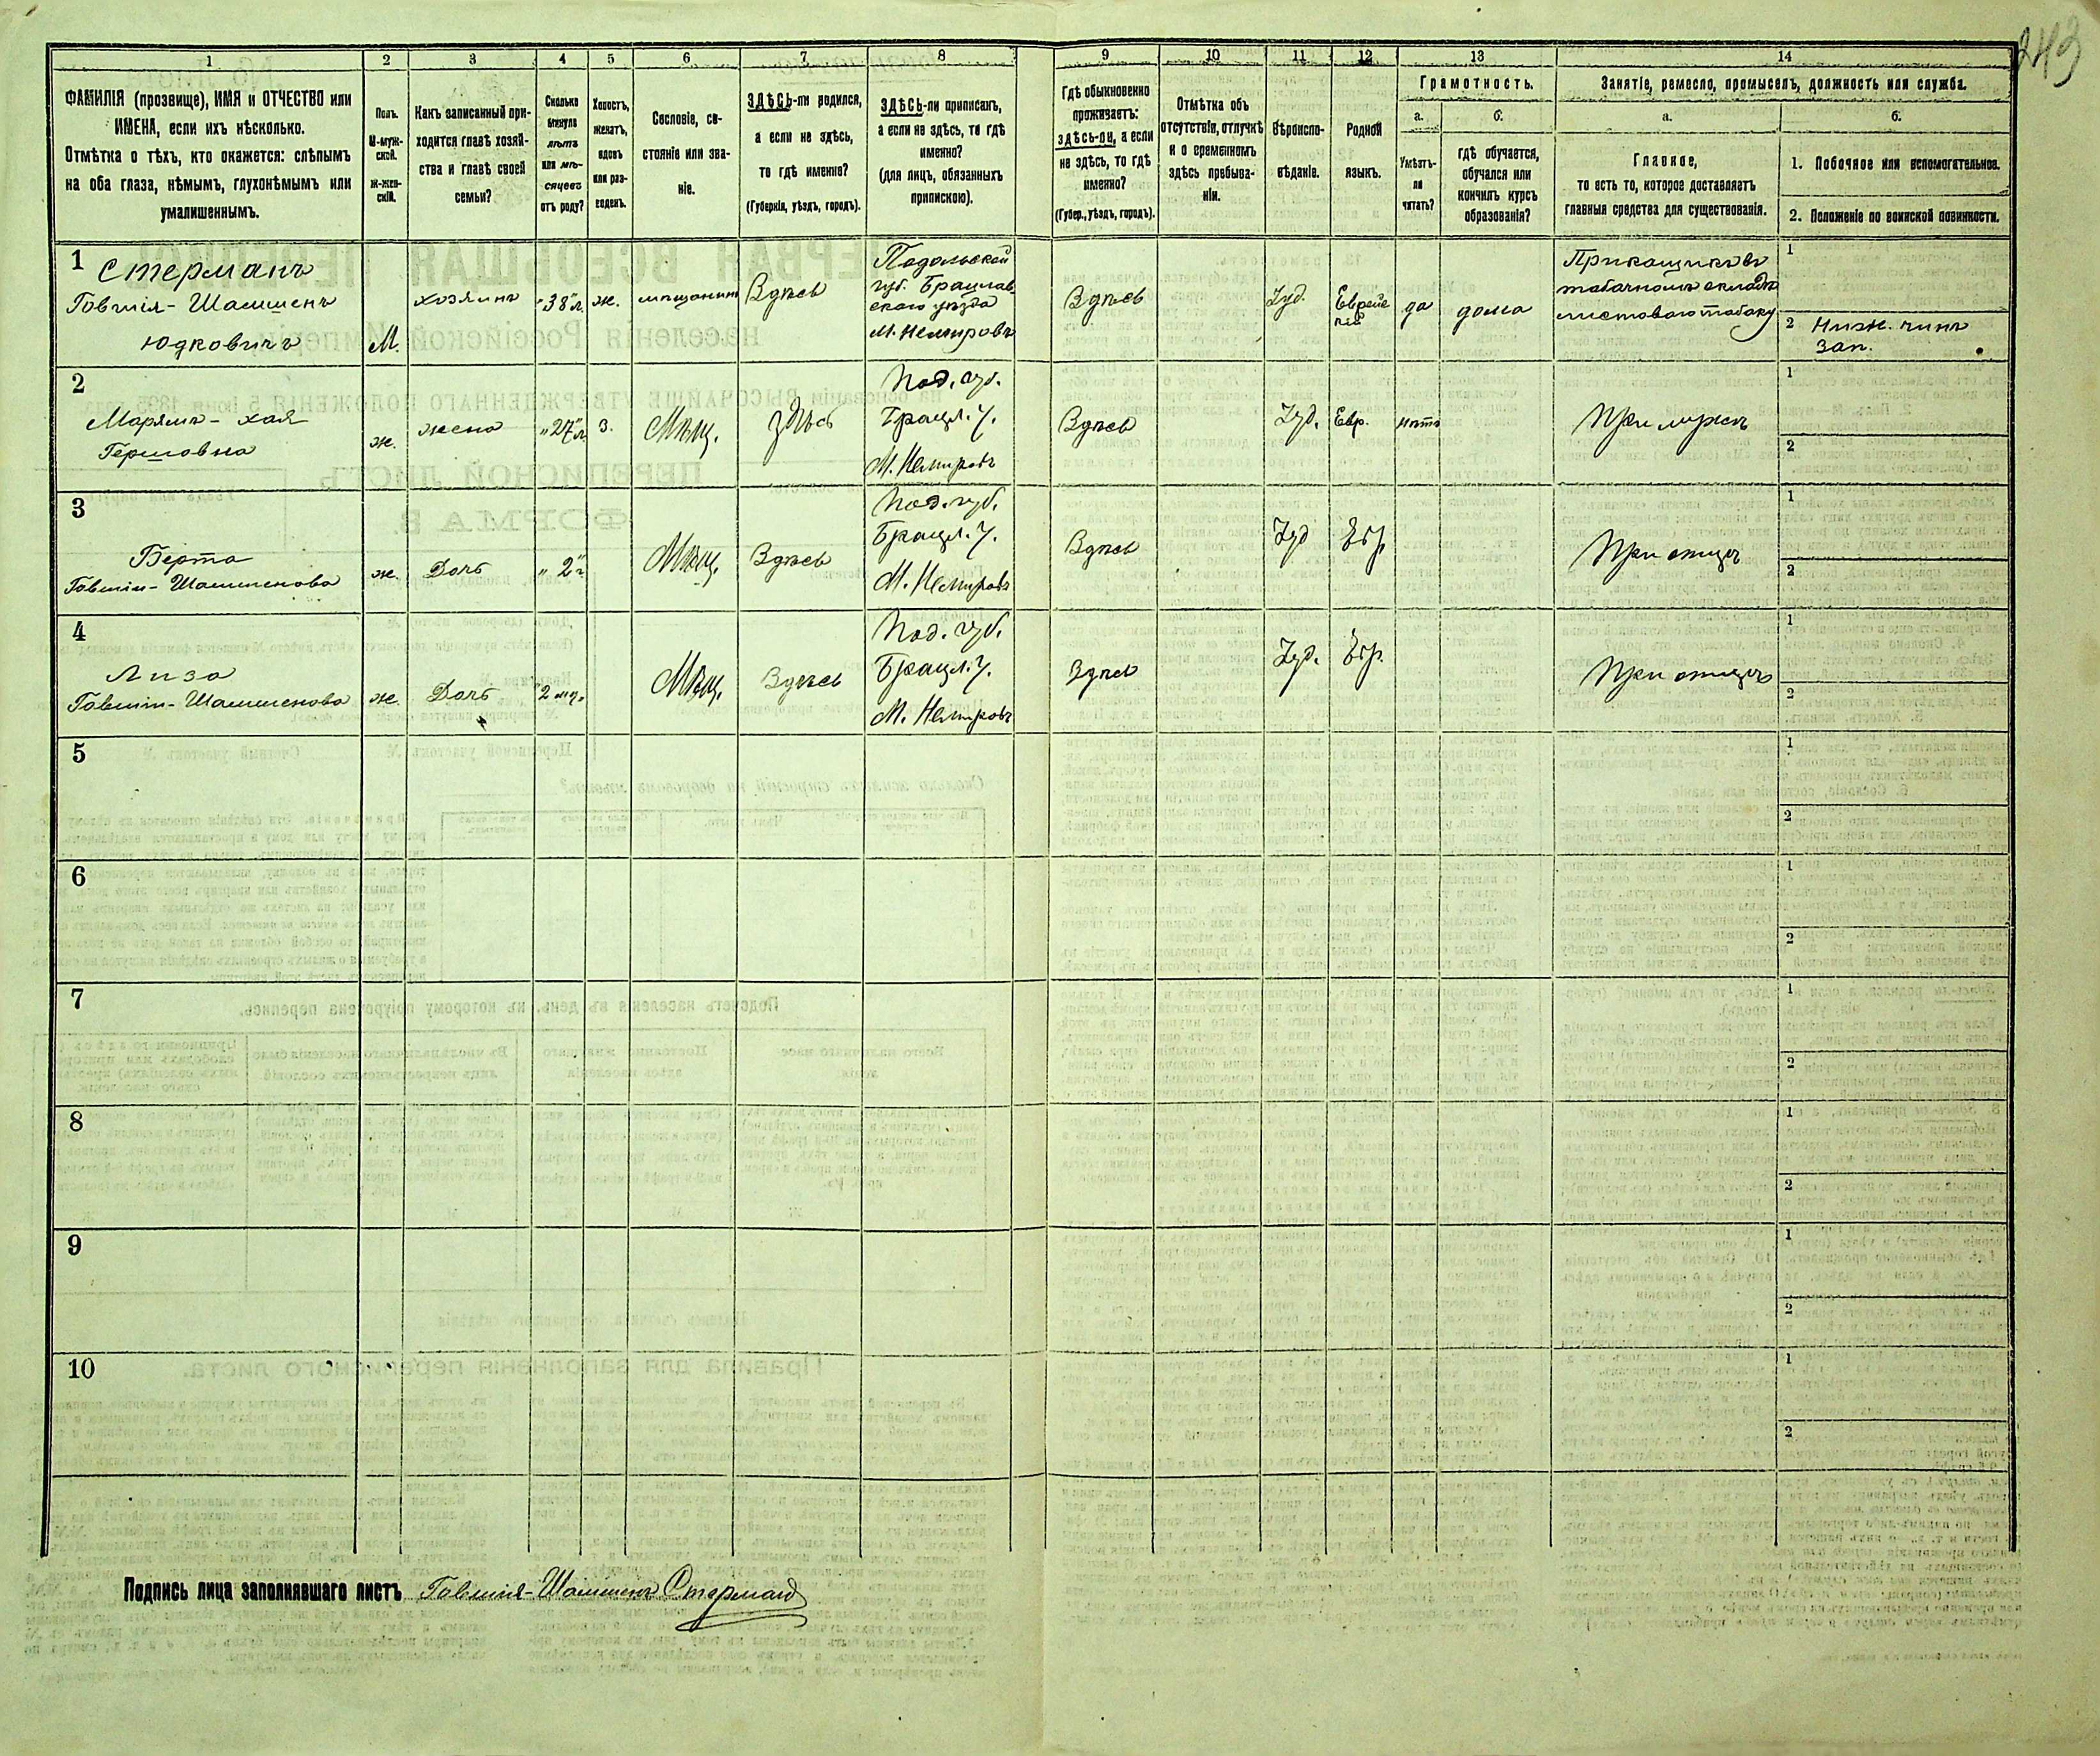 243
1
2
3
4
5
6
7
8
9
10
11
12
13
14
ФАМИЛІЯ (прозвище), ИМЯ и ОТЧЕСТВО или
ИМЕНА, если ихъ нѣсколько.
Отмѣтка о тѣхъ, кто окажется: слѣпымъ
на оба глаза, нѣмымъ, глухонѣмымъ или
умалишеннымъ.
Полъ.
М-муж-
ской.
Ж-жен-
скій.
Какъ записанный при-
ходится главѣ хозяй-
ства и главѣ своей
семьи?
Сколько
минуло
лѣтъ
или мѣ-
сяцевъ
отъ роду?
Холостъ,
женатъ,
вдовъ
или раз-
веденъ.
Сословіе, со-
стояніе или зва-
ніе.
ЗДѢСЬ-ли родился,
а если не здѣсь,
то гдѣ именно?
(Губернія, уѣздъ, городъ).
ЗДѢСЬ-ли приписанъ,
а если не здѣсь, то гдѣ
именно?
(для лицъ, обязанныхъ
припискою).
Гдѣ обыкновенно
проживаетъ:
здѣсь-ли, а если
не здѣсь, то гдѣ
именно?
(Губер., уѣздъ, городъ).
Отмѣтка объ
отсутствіи, отлучкѣ
и о временномъ
здѣсь пребыва-
ніи.
Вѣроиспо-
вѣданіе.
Родной
языкъ.
Грамотность.
а.
Умѣетъ-
ли
читать?
б.
гдѣ обучается,
обучался или
кончилъ курсъ
образованія?
Занятіе, ремесло, промыселъ, должность или служба.
а.
Главное,
то есть то, которое доставляетъ
главныя средства для существованія.
б.
1. Побочное или вспомогательное.
2. Положеніе по воинской повинности.
1
Стерманъ
Говшія-Шамшенъ
Юдковичъ
М.
хозяинъ
"38"л.
ж.
мѣщанинъ
Здѣсь
Подольской
губ. Брацлав-
скаго уѣзда
М. Немировъ
Здѣсь
Іуд.
Еврейс
кій
да
дома
Прикащикъ въ
табачномъ складѣ
листоваго табаку
1
2 Нижн. чинъ
зап.
2
Марямъ-Хая
Гершовна
ж.
жена
"27"л.
З.
Мѣщ.
здѣсь
Под. губ.
Брацл. У.
М. Немировъ
Здѣсь
Іуд.
Евр.
нѣтъ
При мужѣ
1
2
3
Берта
Говшія-Шамшенова
ж.
Дочь
"2"г.
Мѣщ.
Здѣсь
Под. губ.
Брацл. У.
М. Немировъ
Здѣсь
Іуд
Евр.
При отцѣ
1
2
4
Лиза
Говшія-Шамшенова
ж.
Дочь
2 мѣ.
Мѣщ.
Здѣсь
Под. губ.
Брацл. У.
М. Немировъ
Здѣсь
Іуд.
Евр.
При отцѣ
1
2
5
1
2
6
1
2
7
1
2
8
1
2
9
1
2
10
1
2
Подпись лица заполнявшаго листъ Говшія-Шамшенъ Стерманъ